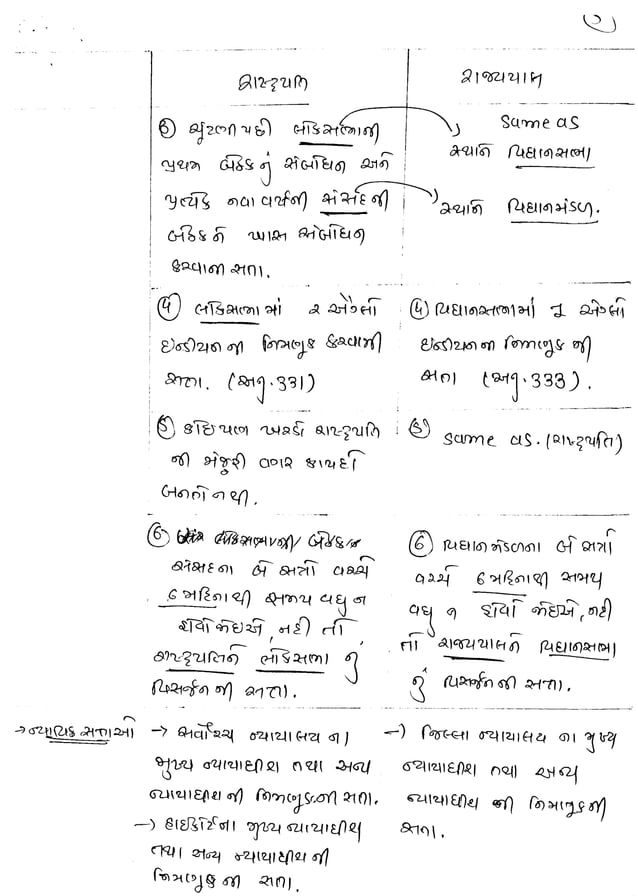 ૭
રાષ્ટ્રપતિ
રાજ્યપાલ
③ ચૂંટણી પછી લોકસભાની
પ્રથમ બેઠકનું સંબોધન અને
પ્રત્યેક નવા વર્ષની સંસદની
બેઠકને ખાસ સંબોધન
કરવાની સત્તા.
same as
સ્થાને વિધાનસભા
સ્થાને વિધાનમંડળ.
④ લોકસભામાં ૨ એંગ્લો
ઇન્ડીયનની નિમણૂક કરવાની
સત્તા. (અનુ.331)
④ વિધાનસભામાં 1 એંગ્લો
ઇન્ડીયનની નિમણૂકની
સત્તા (અનુ.333).
⑤ કોઇપણ ખરડો રાષ્ટ્રપતિ
ની મંજૂરી વગર કાયદો
બનતો નથી.
⑤ same as. (રાષ્ટ્રપતિ)
⑥ લોકસભાની બેઠક
સંસદના બે સત્રો વચ્ચે
6 મહિનાથી સમય વધુ ન
હોવો જોઇએ, નહી તો
રાષ્ટ્રપતિને લોકસભા નું
વિસર્જનની સત્તા.
⑥ વિધાનમંડળના બે સત્રો
વચ્ચે 6 મહિનાથી સમય
વધુ ન હોવો જોઇએ, નહી
તો રાજ્યપાલને વિધાનસભા
નું વિસર્જનની સત્તા.
→ ન્યાયિક સત્તાઓ
→ સર્વોચ્ચ ન્યાયાલય ના
મુખ્ય ન્યાયાધીશ તથા અન્ય
ન્યાયાધીશની નિમણૂકની સત્તા.
→ હાઇકોર્ટના મુખ્ય ન્યાયાધીશ
તથા અન્ય ન્યાયાધીશ ની
નિમણૂક ની સત્તા.
→ જિલ્લા ન્યાયાલય ના મુખ્ય
ન્યાયાધીશ તથા અન્ય
ન્યાયાધીશ ની નિમણૂકની
સત્તા.